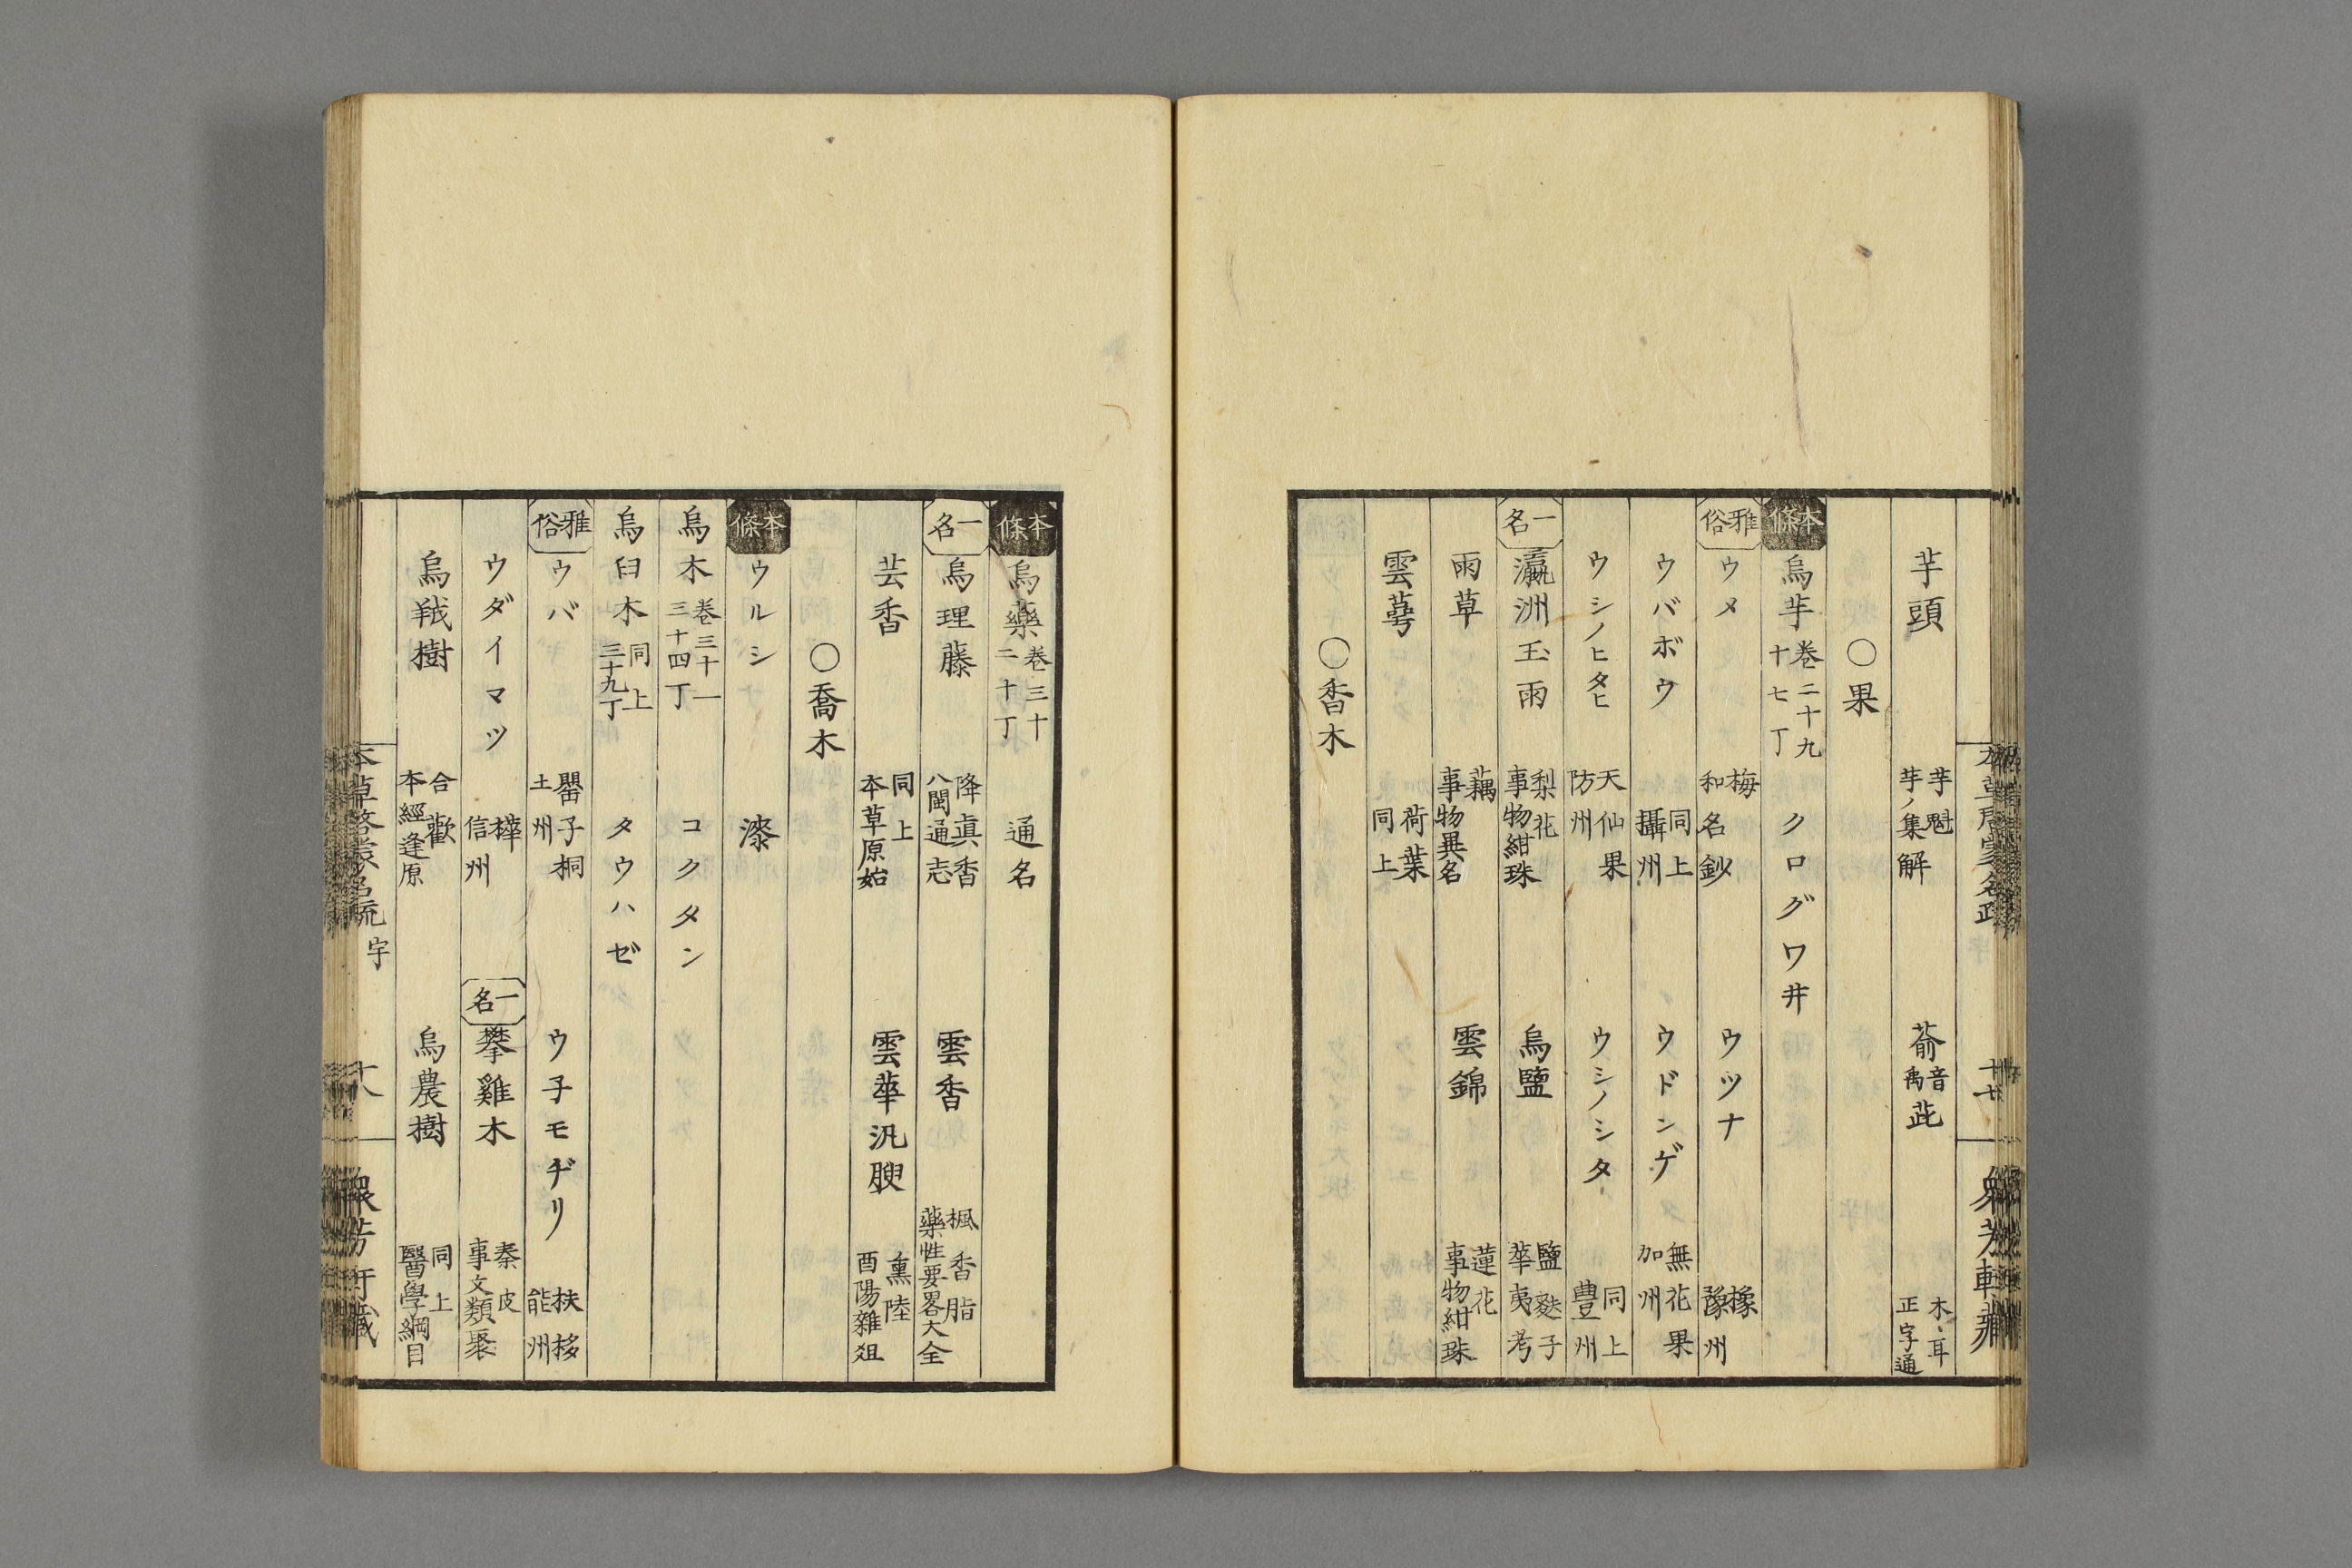 芋頭 芋魁 芋ノ集解 萮 音禹 茈 木、耳 正字通
○果
本條 烏芋 卷二十九 十七丁 クログワ井
雅俗 ウメ 梅 和名鈔 ウツナ 橡 豫州
ウバボウ 同上 攝州 ウドンゲ 無花果 加州
ウシノヒタヒ 天仙果 防州 ウシノシタ 同上 豊州
一名 瀛洲玉雨 梨花 事物紺珠 烏鹽 鹽麩子 華夷考
雨草 藕 事物異名 雲錦 蓮花 事物紺珠
雲蕚 荷葉 同上
○香木
本條 烏藥 卷三十 二十丁 通名
一名 烏理藤 降眞香 八閩通志 雲香 楓香脂 藥性要畧大全
芸香 同上 本草原始 雲華汎腴 熏陸 酉陽雜俎
○喬木
本條 ウルシ 漆
烏木 卷三十一 三十四丁 コクタン
烏臼木 同上 三十九丁 タウハゼ
雅俗 ウバ 罌子桐 土州 ウ子モヂリ 扶栘 能州
ウダイマツ 樺 信州 一名 攀雞木 秦皮 事文類聚
烏絨樹 合歡 本經逢原 烏農樹 同上 醫學綱目
本草啓蒙名疏 宇 十八 衆芳軒藏